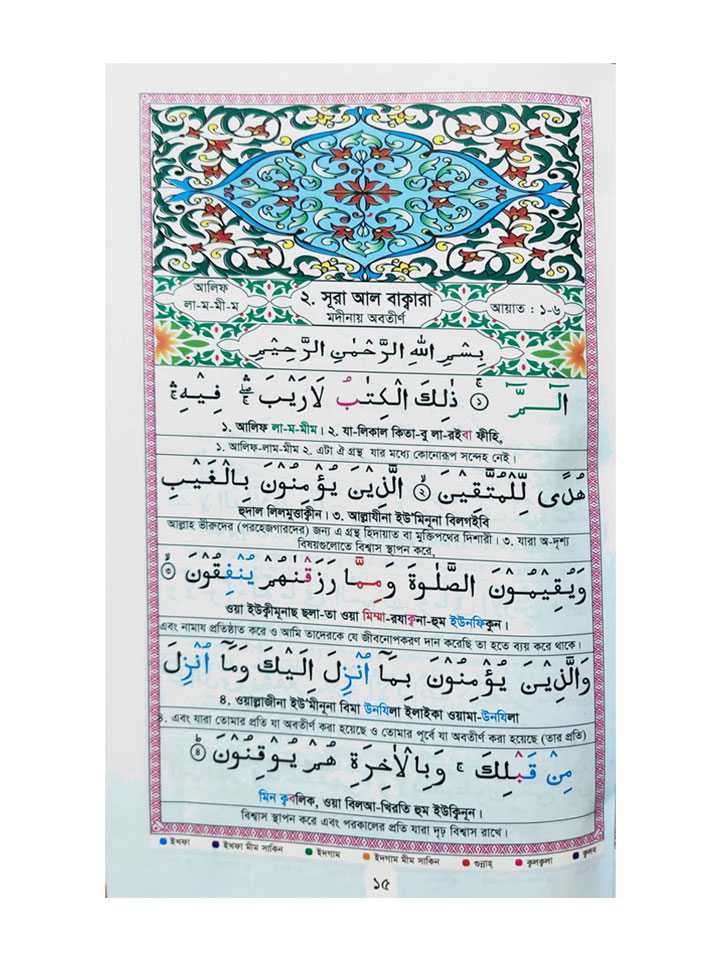 আলিফ
লা-ম-মী-ম
২. সূরা আল বাক্বারা
মদীনায় অবতীর্ণ
আয়াত : ১-৬
بِسْمِ اللهِ الرَّحْمٰنِ الرَّحِيْمِ
الٓـمّٓ ۚ ﴿۱﴾ ذٰلِكَ الْكِتٰبُ لَا رَيْبَ ۛۖ ۚ فِيْهِ ۛۚ
১. আলিফ লা-ম-মীম। ২. যা-লিকাল কিতা-বু লা-রইবা ফীহি,
১. আলিফ-লাম-মীম ২. এটা ঐ গ্রন্থ যার মধ্যে কোনোরূপ সন্দেহ নেই।
هُدًى لِّلْمُتَّقِيْنَ ۙ ﴿۲﴾ الَّذِيْنَ يُؤْمِنُوْنَ بِالْغَيْبِ
হুদাল লিলমুত্তাক্বীন। ৩. আল্লাযীনা ইউ'মিনূনা বিলগইবি
আল্লাহ ভীরুদের (পরহেজগারদের) জন্য এ গ্রন্থ হিদায়াত বা মুক্তিপথের দিশারী। ৩. যারা অ-দৃশ্য
বিষয়গুলোতে বিশ্বাস স্থাপন করে,
وَيُقِيْمُوْنَ الصَّلٰوةَ وَمِمَّا رَزَقْنٰهُمْ يُنْفِقُوْنَ ۙ ﴿۳﴾
ওয়া ইউক্বীমূনাছ ছলা-তা ওয়া মিম্মা-রযাকুনা-হুম ইউনফিকুন।
এবং নামায প্রতিষ্ঠাত করে ও আমি তাদেরকে যে জীবনোপকরণ দান করেছি তা হতে ব্যয় করে থাকে।
وَالَّذِيْنَ يُؤْمِنُوْنَ بِمَآ اُنْزِلَ اِلَيْكَ وَمَآ اُنْزِلَ
৪. ওয়াল্লাজীনা ইউ'মীনূনা বিমা উনযিলা ইলাইকা ওয়ামা-উনযিলা
৪. এবং যারা তোমার প্রতি যা অবতীর্ণ করা হয়েছে ও তোমার পূর্বে যা অবতীর্ণ করা হয়েছে (তার প্রতি)
مِنْ قَبْلِكَ ۚ وَبِالْاٰخِرَةِ هُمْ يُوْقِنُوْنَ ؕ ﴿۴﴾
মিন ক্ববলিক, ওয়া বিলআ-খিরতি হুম ইউক্বিনুন।
বিশ্বাস স্থাপন করে এবং পরকালের প্রতি যারা দৃঢ় বিশ্বাস রাখে।
ইখফা ইখফা মীম সাকিন ইদগাম ইদগাম মীম সাকিন গুন্নাহ্ কুলকুলা কুলব
১৫